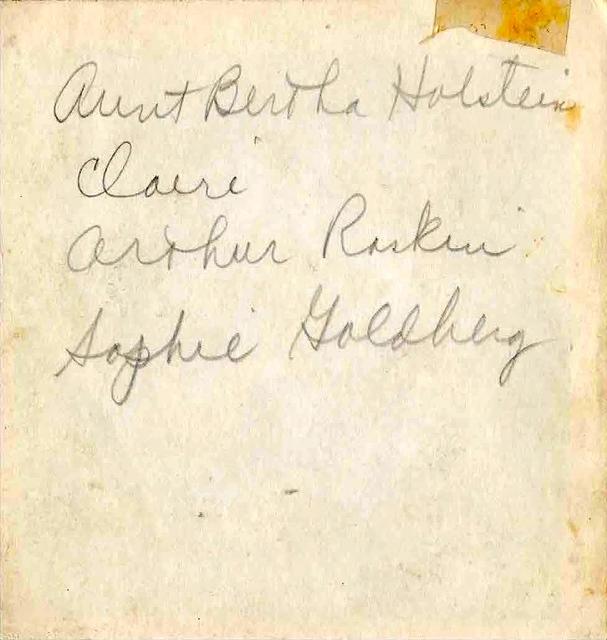 Aunt Bertha Holstein
Claire
Arthur Raskin
Sophie Goldberg